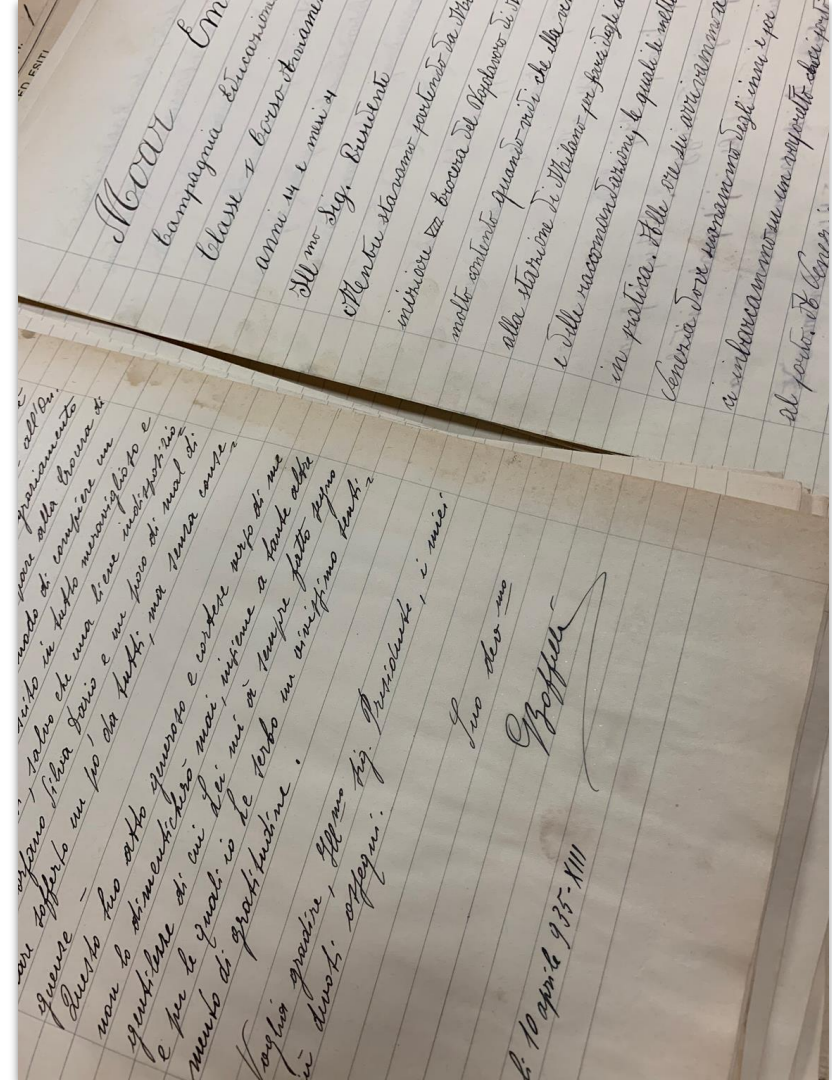 ED ESITI
Moar Em
Compagnia Educazion
Classe 1 Corso Avviamen
anni 14 e mesi 4
Ill mo Sig. Presidente
Mentre stavamo partendo da Mi
iniziare la Crocera del Dopolavoro di
molto contento quando vidi che ella ve
alla stazione di Milano per farci degli a
e delle raccomandazioni, le quali le mett
in pratica. Alle ore si arrivammo a
Venezia dove suonammo degli inni e poi
ci imbarcammo su un vaporetto che ci port
al porto di Venezia
all'On.
graziamento
pare alla Crocera di
modo di compiere un
scito in tutto meraviglioso e
, salvo che una lieve indisposizio=
orfano Silva Dario e un poco di mal di
are sofferto un pó da tutti, ma senza conse=
guenze -
Questo Suo atto generoso e cortese verso di me
non lo dimenticherò mai, insieme a tante altre
gentilesse di cui Lei mi à sempre fatto segno
e per le quali io Le serbo un vivissimo senti=
mento di gratitudine.
Voglia gradire, Ill mo Sig. Presidente, i miei
più devoti ossequi.
Suo dev mo
li 10 aprile 935-XIII